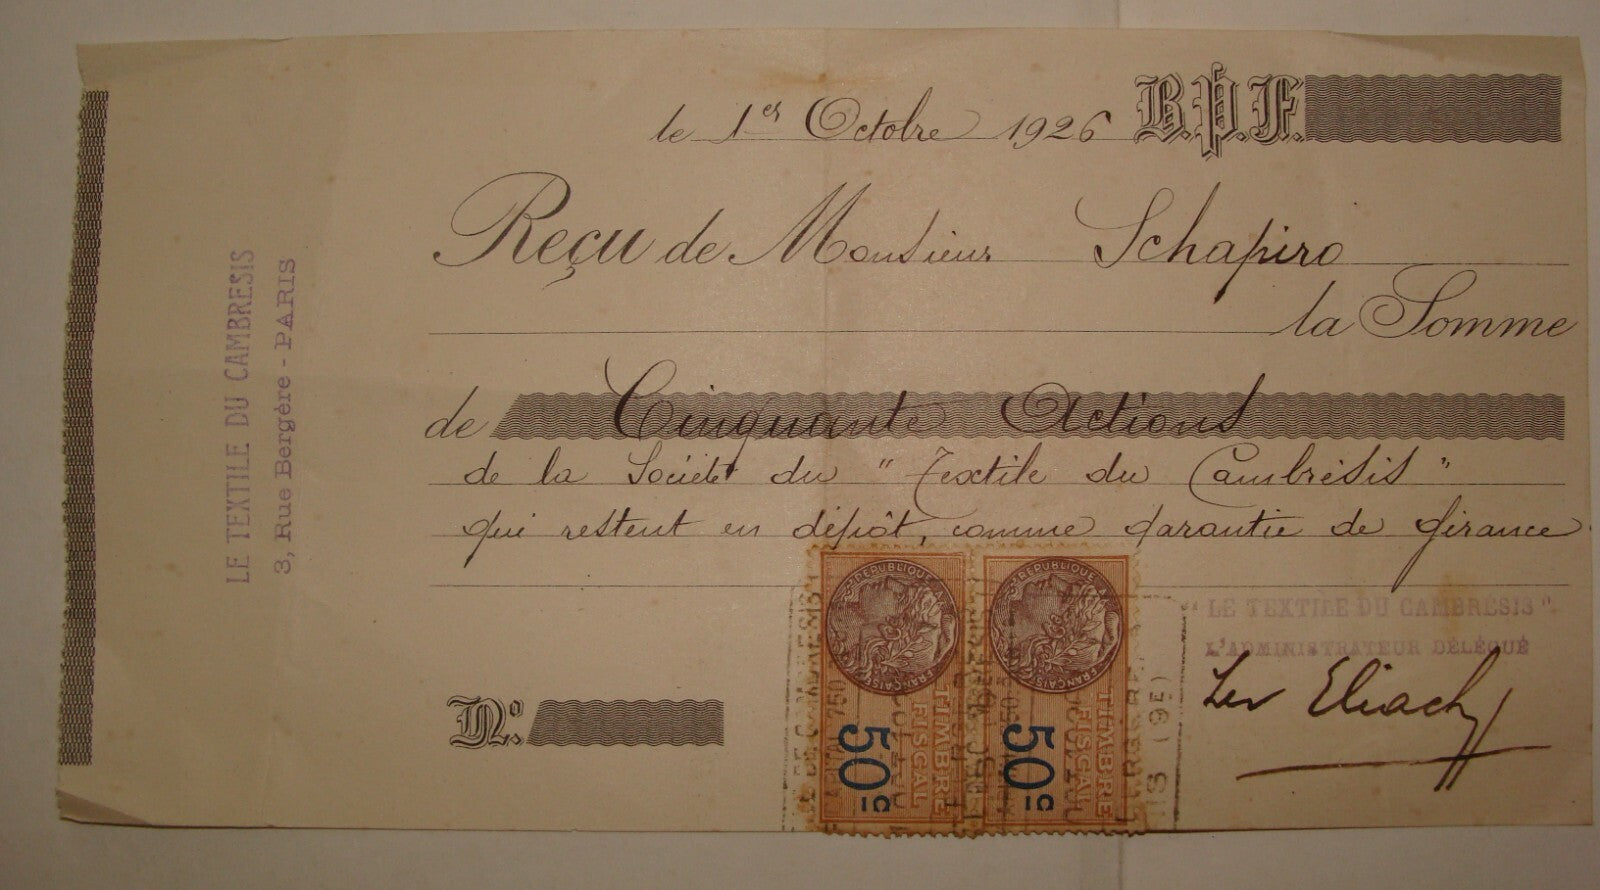 le 1er Octobre 1926 B.P.F.
Reçu de Monsieur Schapiro
la Somme
de Cinquante Actions
de la Société du " Textile du Cambrésis "
qui restent en dépôt, comme garantie de gérance
LE TEXTILE DU CAMBRESIS
3, Rue Bergère - PARIS
"LE TEXTILE DU CAMBRESIS"
L'ADMINISTRATEUR DÉLÉGUÉ
Lev Eliach
No.
REPUBLIQUE FRANÇAISE
TIMBRE
FISCAL
50c
REPUBLIQUE FRANÇAISE
TIMBRE
FISCAL
50c